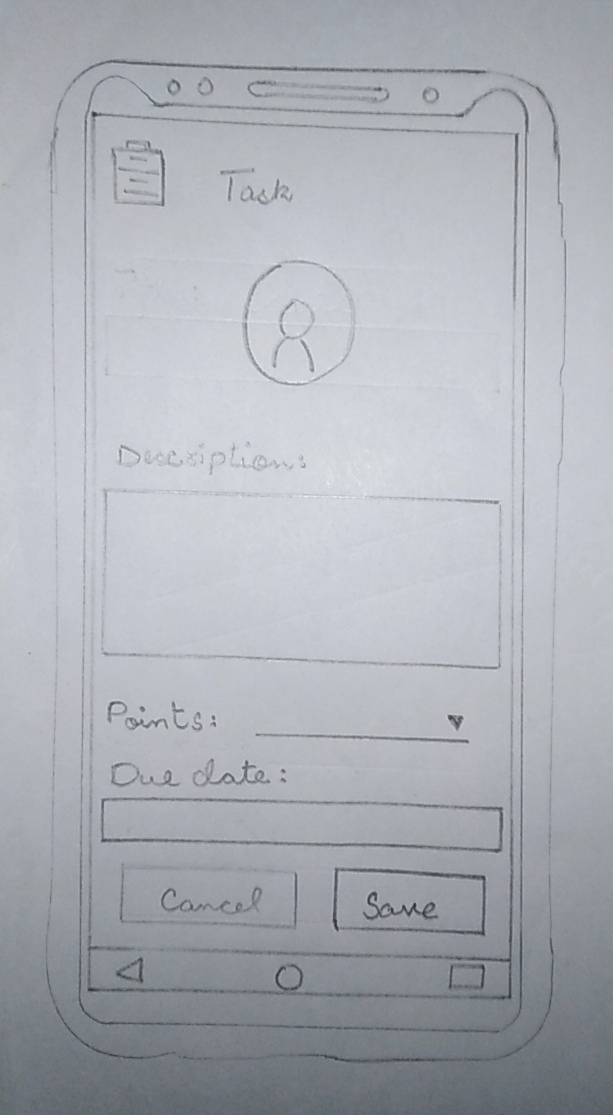 Task
Description:
Points:
Due date:
Cancel Save